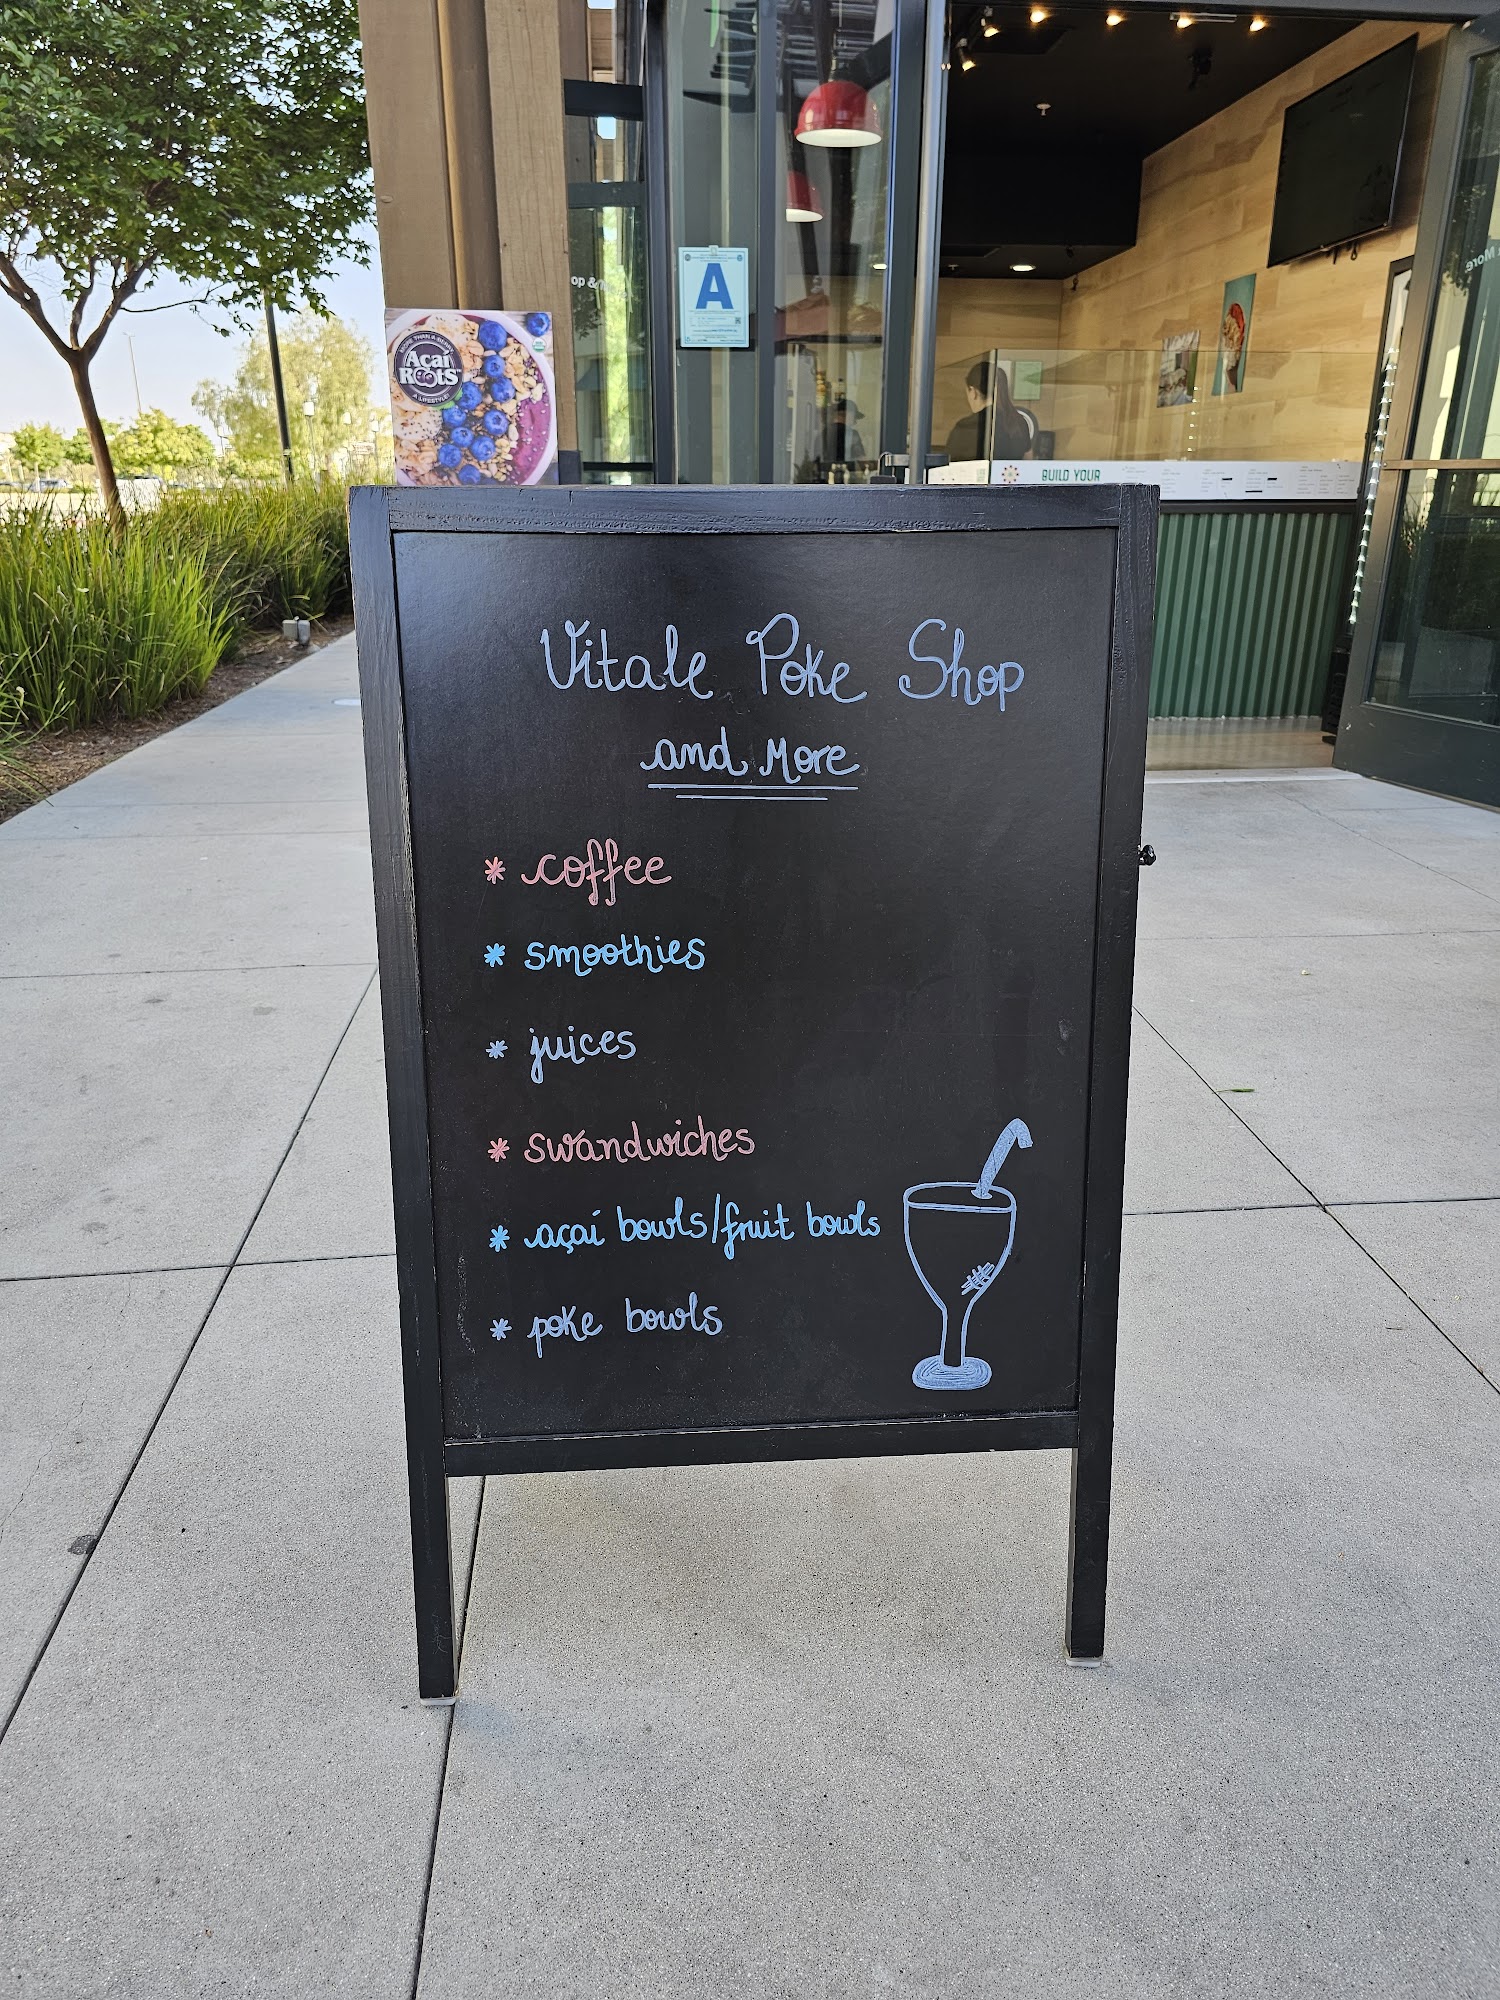 A
MORE THAN A BERRY
Açaí
ROOTS
A LIFESTYLE
BUILD YOUR
Vitale Poke Shop
and More
* coffee
* smoothies
* juices
* swandwiches
* açaí bowls/fruit bowls
* poke bowls